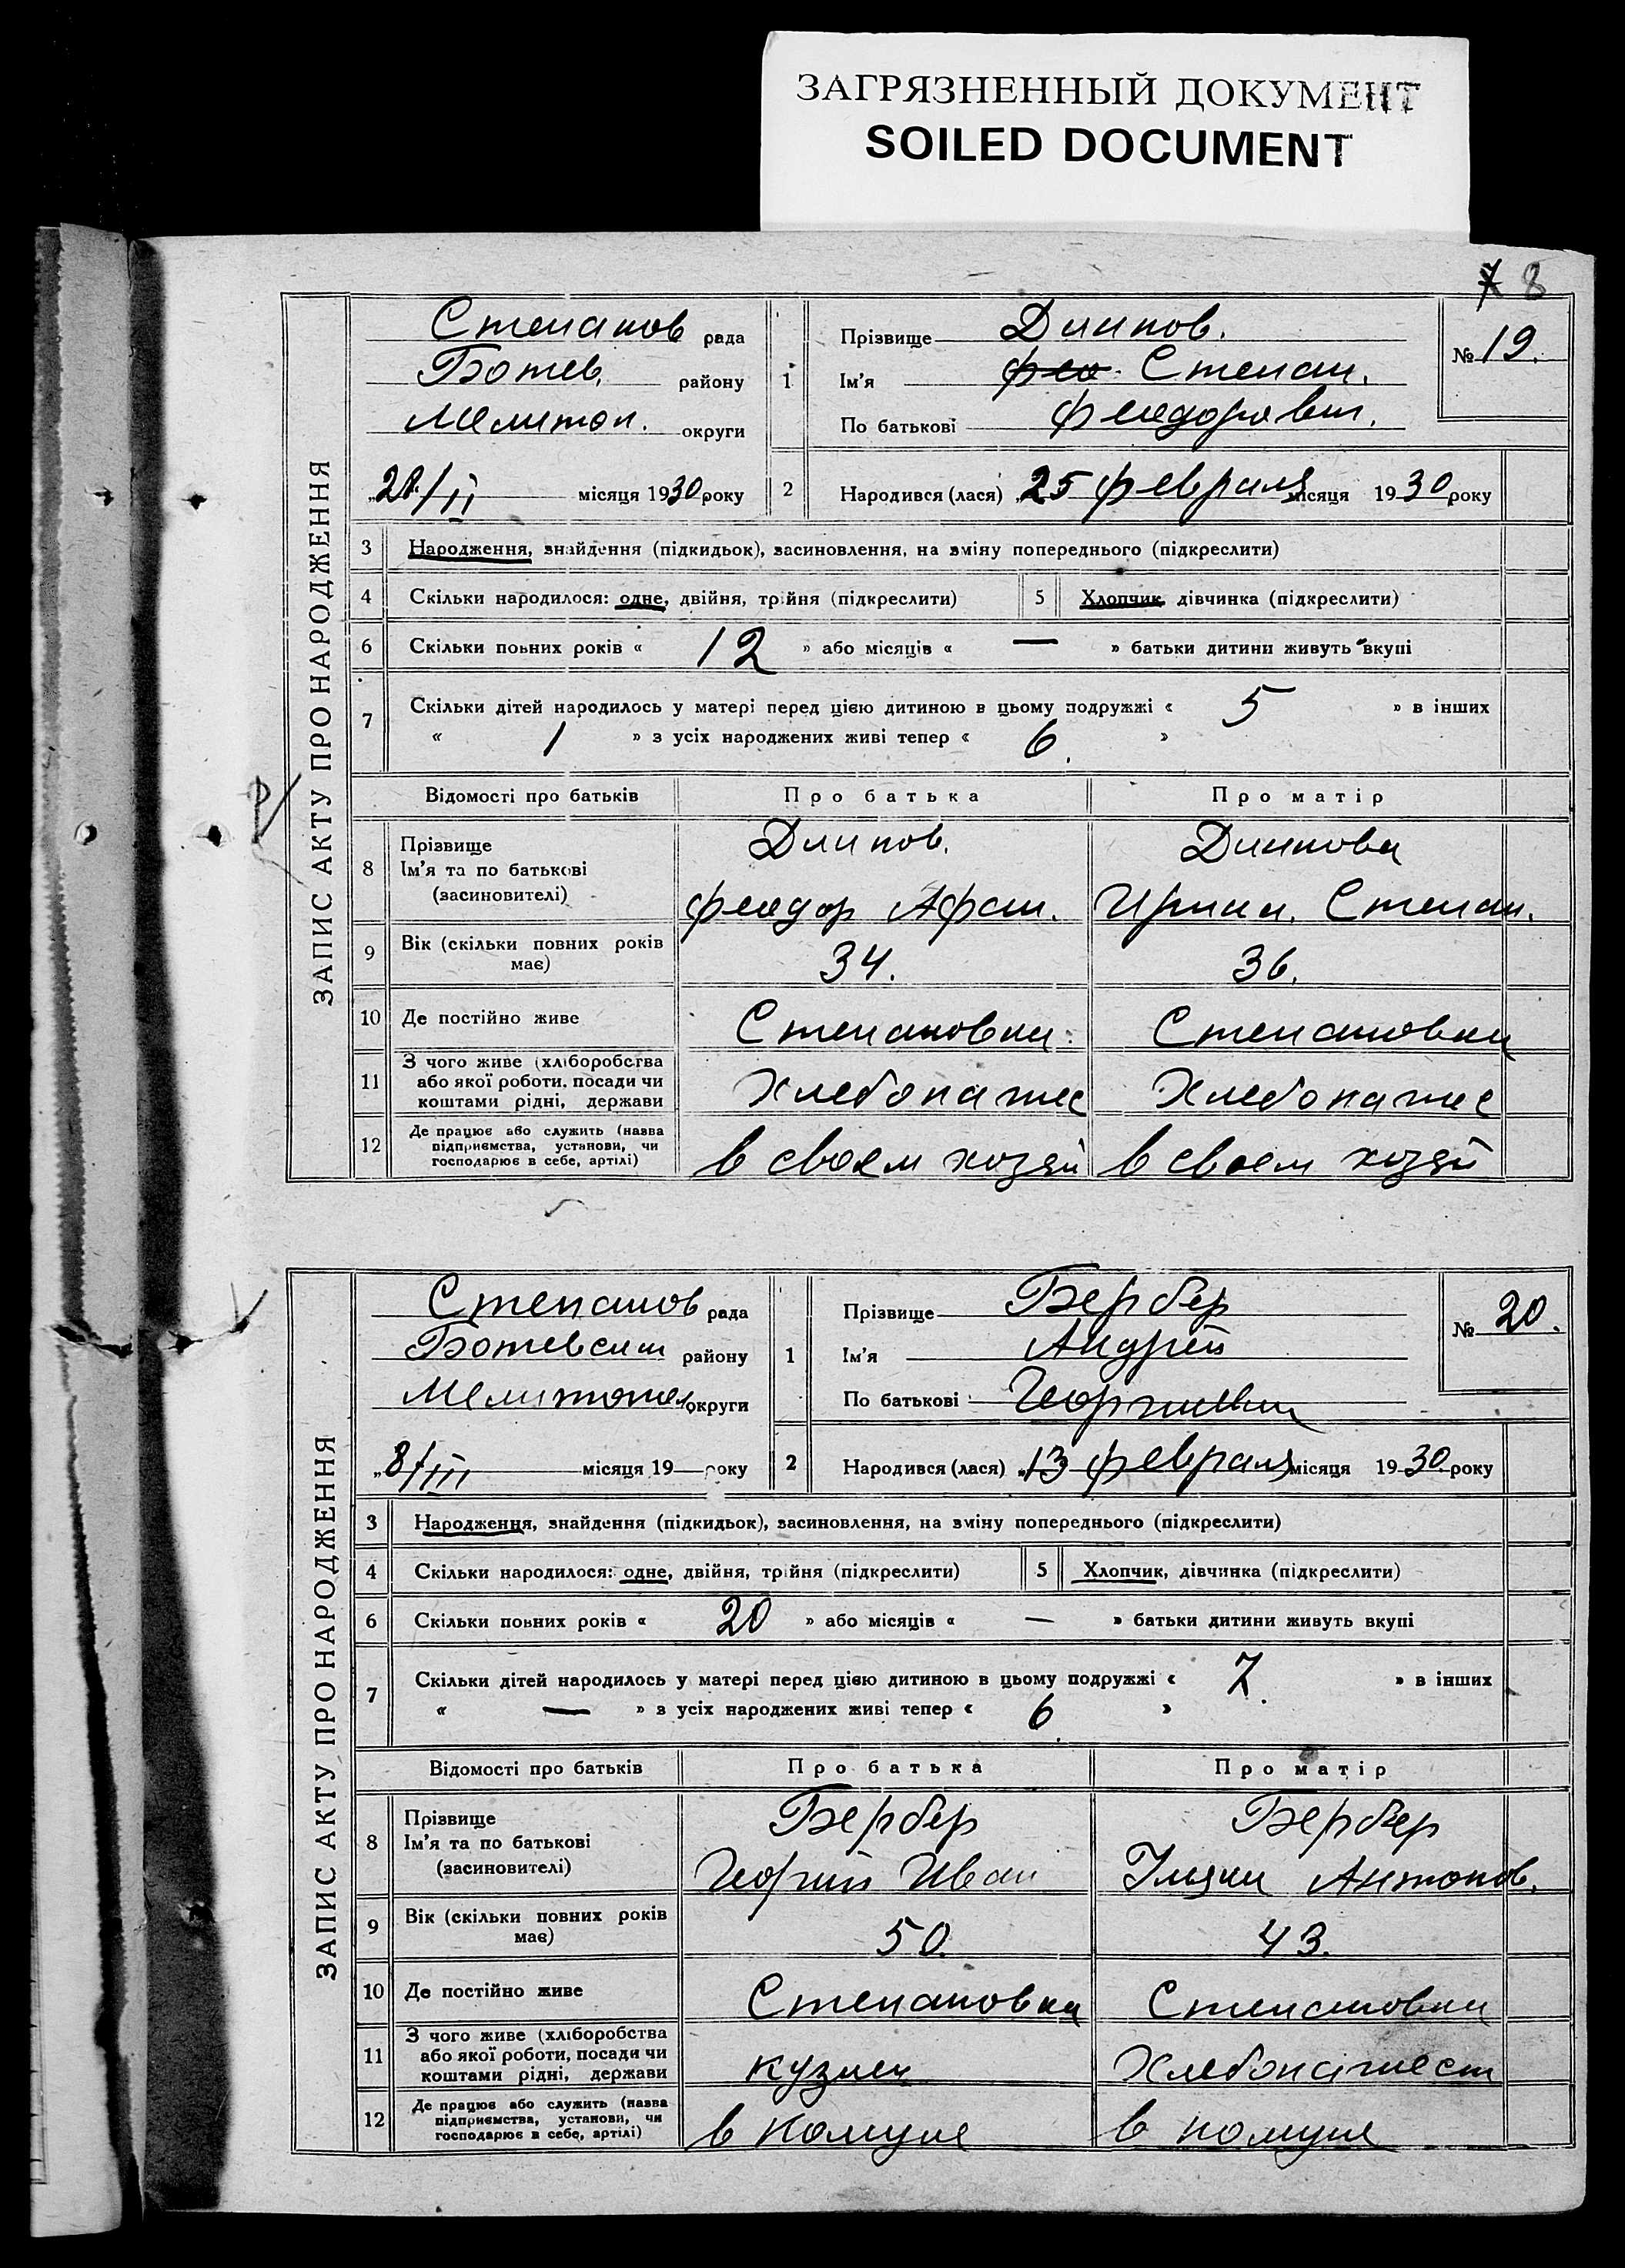 ЗАГРЯЗНЕННЫЙ ДОКУМЕНТ
SOILED DOCUMENT
7 8
ЗАПИС АКТУ ПРО НАРОДЖЕННЯ
Степанов рада
Ботев. району
Мелитоп. округи
„28/II місяця 1930 року
1 Прізвище Длинов.
Ім'я Фео Степан.
По батькові Феодорович.
№ 19.
2 Народився (лася) „25 февраля місяця 1930 року
3 Народження, знайдення (підкидьок), засиновлення, на зміну попереднього (підкреслити)
4 Скільки народилося: одне, двійня, трійня (підкреслити) 5 Хлопчик, дівчинка (підкреслити)
6 Скільки повних років « 12 » або місяців « — » батьки дитини живуть вкупі
7 Скільки дітей народилось у матері перед цією дитиною в цьому подружжі « 5 » в інших
« 1 » з усіх народжених живі тепер « 6. »
Відомості про батьків Про батька Про матір
8 Прізвище
Ім'я та по батькові
(засиновителі)
Длинов.
Феодор Афан.
Длинова
Ирина. Степан.
9 Вік (скільки повних років
має)
34. 36.
10 Де постійно живе Степановка Степановка
11 З чого живе (хліборобства
або якої роботи, посади чи
коштами рідні, держави
Хлебопашес Хлебопашес
12 Де працює або служить (назва
підприємства, установи, чи
господарює в себе, артілі)
в своем хозяй в своем хозяй
ЗАПИС АКТУ ПРО НАРОДЖЕННЯ
Степанов рада
Ботевским району
Мелитопол округи
„8/III місяця 19 — року
1 Прізвище Бербер
Ім'я Андрей
По батькові Георгиевич
№ 20.
2 Народився (лася) „13 февраля місяця 1930 року
3 Народження, знайдення (підкидьок), засиновлення, на зміну попереднього (підкреслити)
4 Скільки народилося: одне, двійня, трійня (підкреслити) 5 Хлопчик, дівчинка (підкреслити)
6 Скільки повних років « 20 » або місяців « — » батьки дитини живуть вкупі
7 Скільки дітей народилось у матері перед цією дитиною в цьому подружжі « 7. » в інших
« — » з усіх народжених живі тепер « 6. »
Відомості про батьків Про батька Про матір
8 Прізвище
Ім'я та по батькові
(засиновителі)
Бербер
Георгий Иван
Бербер
Антонов.
9 Вік (скільки повних років
має)
50. 43.
10 Де постійно живе Степановка Степановка
11 З чого живе (хліборобства
або якої роботи, посади чи
коштами рідні, держави
кузнец Хлебопашест
12 Де працює або служить (назва
підприємства, установи, чи
господарює в себе, артілі)
в комуне в комуне